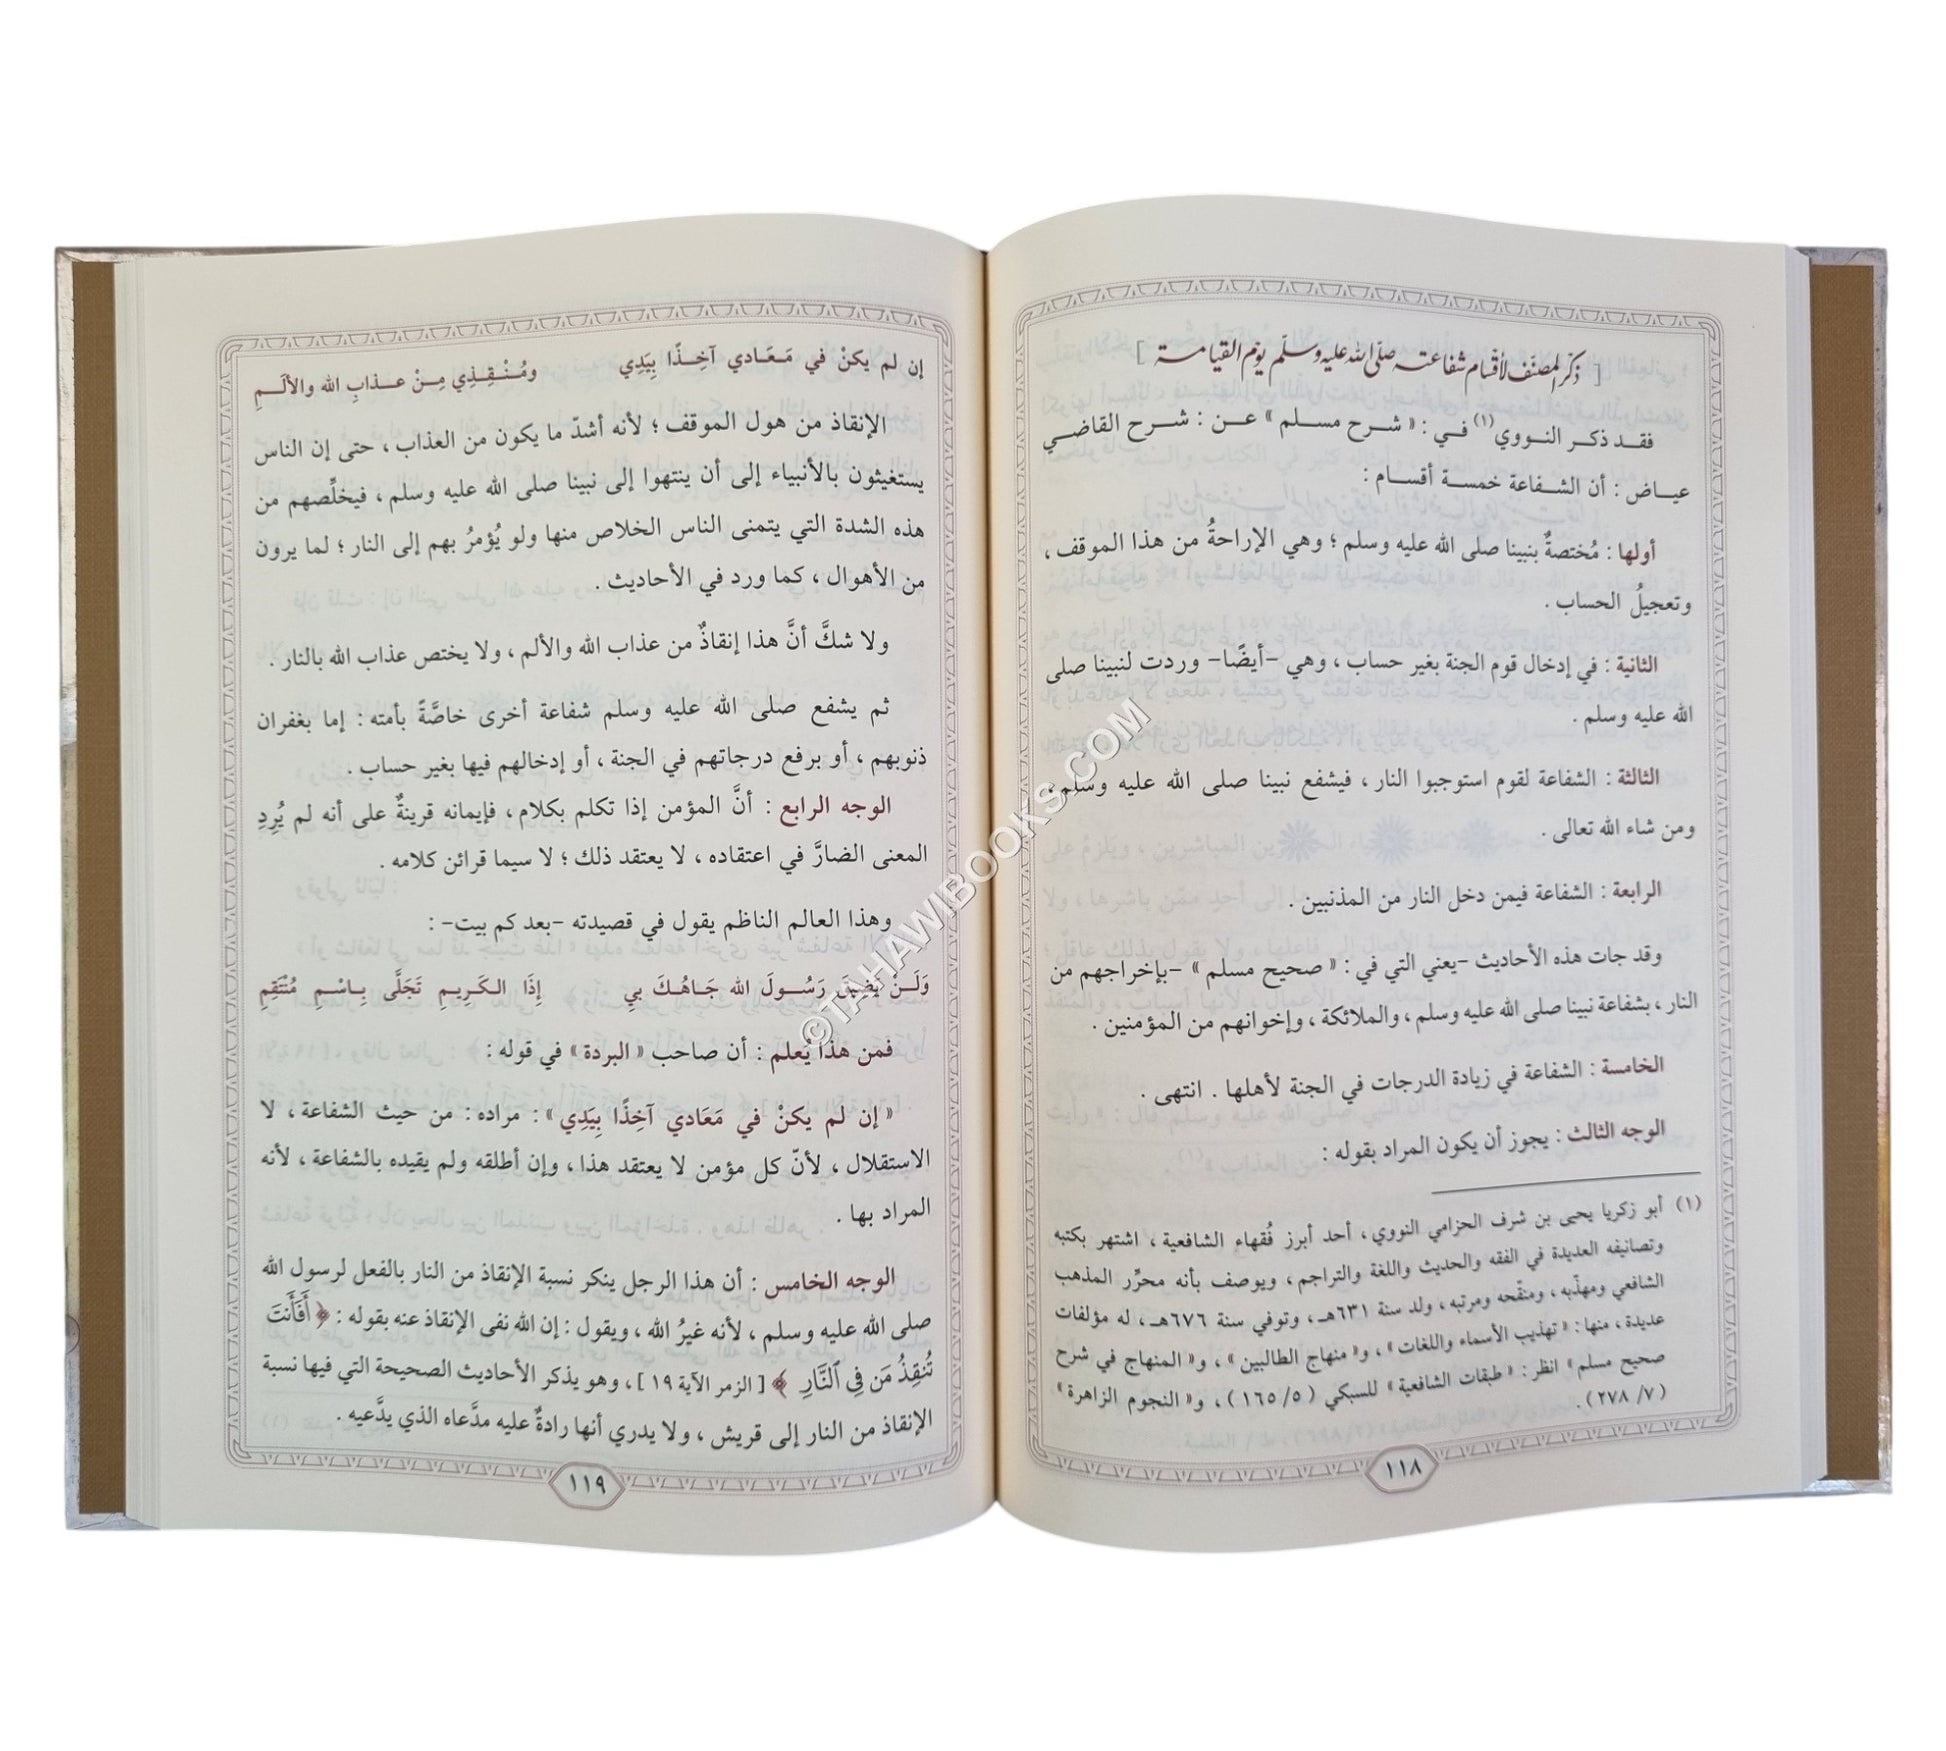 [ ذكر المصنف لأقسام شفاعته صلى الله عليه وسلم يوم القيامة ]
فقد ذكر النووي(١) في : « شرح مسلم » عن : شرح القاضي
عياض : أن الشفاعة خمسة أقسام :
أولها : مُختصةٌ بنبينا صلى الله عليه وسلم ؛ وهي الإراحةُ من هذا الموقف ،
وتعجيلُ الحساب .
الثانية : في إدخال قوم الجنة بغير حساب ، وهي –أيضًا– وردت لنبينا صلى
الله عليه وسلم .
الثالثة : الشفاعة لقوم استوجبوا النار ، فيشفع نبينا صلى الله عليه وسلم،
ومن شاء الله تعالى .
الرابعة : الشفاعة فيمن دخل النار من المذنبين .
وقد جات هذه الأحاديث –يعني التي في : « صحيح مسلم » –بإخراجهم من
النار ، بشفاعة نبينا صلى الله عليه وسلم ، والملائكة ، وإخوانهم من المؤمنين .
الخامسة : الشفاعة في زيادة الدرجات في الجنة لأهلها . انتهى .
الوجه الثالث : يجوز أن يكون المراد بقوله :
(١) أبو زكريا يحيى بن شرف الحزامي النووي ، أحد أبرز فُقهاء الشافعية ، اشتهر بكتبه
وتصانيفه العديدة في الفقه والحديث واللغة والتراجم، ويوصف بأنه محرِّر المذهب
الشافعي ومهذّبه ، ومنقّحه ومرتبه ، ولد سنة ٦٣١هـ ، وتوفي سنة ٦٧٦هـ ، له مؤلفات
عديدة ، منها : « تهذيب الأسماء واللغات » ، و« منهاج الطالبين » ، و« المنهاج في شرح
صحيح مسلم » انظر : « طبقات الشافعية » للسبكي ( ٥/ ١٦٥ ) ، و« النجوم الزاهرة »
( ٧/ ٢٧٨ ).
١١٨
إن لم يكنْ في مَعَادي آخِذًا بِيَدِي ومُنْقِذِي مِنْ عذابِ الله والألَمِ
الإنقاذ من هول الموقف ؛ لأنه أشدّ ما يكون من العذاب ، حتى إن الناس
يستغيثون بالأنبياء إلى أن ينتهوا إلى نبينا صلى الله عليه وسلم ، فيخلِّصهم من
هذه الشدة التي يتمنى الناس الخلاص منها ولو يُؤمرُ بهم إلى النار ؛ لما يرون
من الأهوال ، كما ورد في الأحاديث .
ولا شكَّ أنَّ هذا إنقاذٌ من عذاب الله والألم ، ولا يختص عذاب الله بالنار .
ثم يشفع صلى الله عليه وسلم شفاعة أخرى خاصَّةً بأمته : إما بغفران
ذنوبهم ، أو برفع درجاتهم في الجنة ، أو إدخالهم فيها بغير حساب .
الوجه الرابع : أنَّ المؤمن إذا تكلم بكلام ، فإيمانه قرينةٌ على أنه لم يُرِدِ
المعنى الضارَّ في اعتقاده ، لا يعتقد ذلك ؛ لا سيما قرائن كلامه .
وهذا العالم الناظم يقول في قصيدته –بعد كم بيت– :
وَلَنْ يَضِيقَ رَسُولَ الله جَاهُكَ بِي إِذَا الكَرِيمِ تَجَلَّى بِاسْمِ مُنْتَقِمِ
فمن هذا يُعلم : أن صاحب « البردة » في قوله :
« إن لم يكنْ في مَعَادي آخِذًا بِيَدِي » : مراده : من حيث الشفاعة ، لا
الاستقلال ، لأنّ كل مؤمن لا يعتقد هذا ، وإن أطلقه ولم يقيده بالشفاعة ، لأنه
المراد بها .
الوجه الخامس : أن هذا الرجل ينكر نسبة الإنقاذ من النار بالفعل لرسول الله
صلى الله عليه وسلم ، لأنه غيرُ الله ، ويقول : إن الله نفى الإنقاذ عنه بقوله : ﴿ أَفَأَنتَ
تُنقِذُ مَن فِى ٱلنَّارِ ﴾ [ الزمر الآية ١٩ ] ، وهو يذكر الأحاديث الصحيحة التي فيها نسبة
الإنقاذ من النار إلى قريش ، ولا يدري أنها رادةٌ عليه مدَّعاه الذي يدَّعيه .
١١٩
©TAHAWIBOOKS.COM